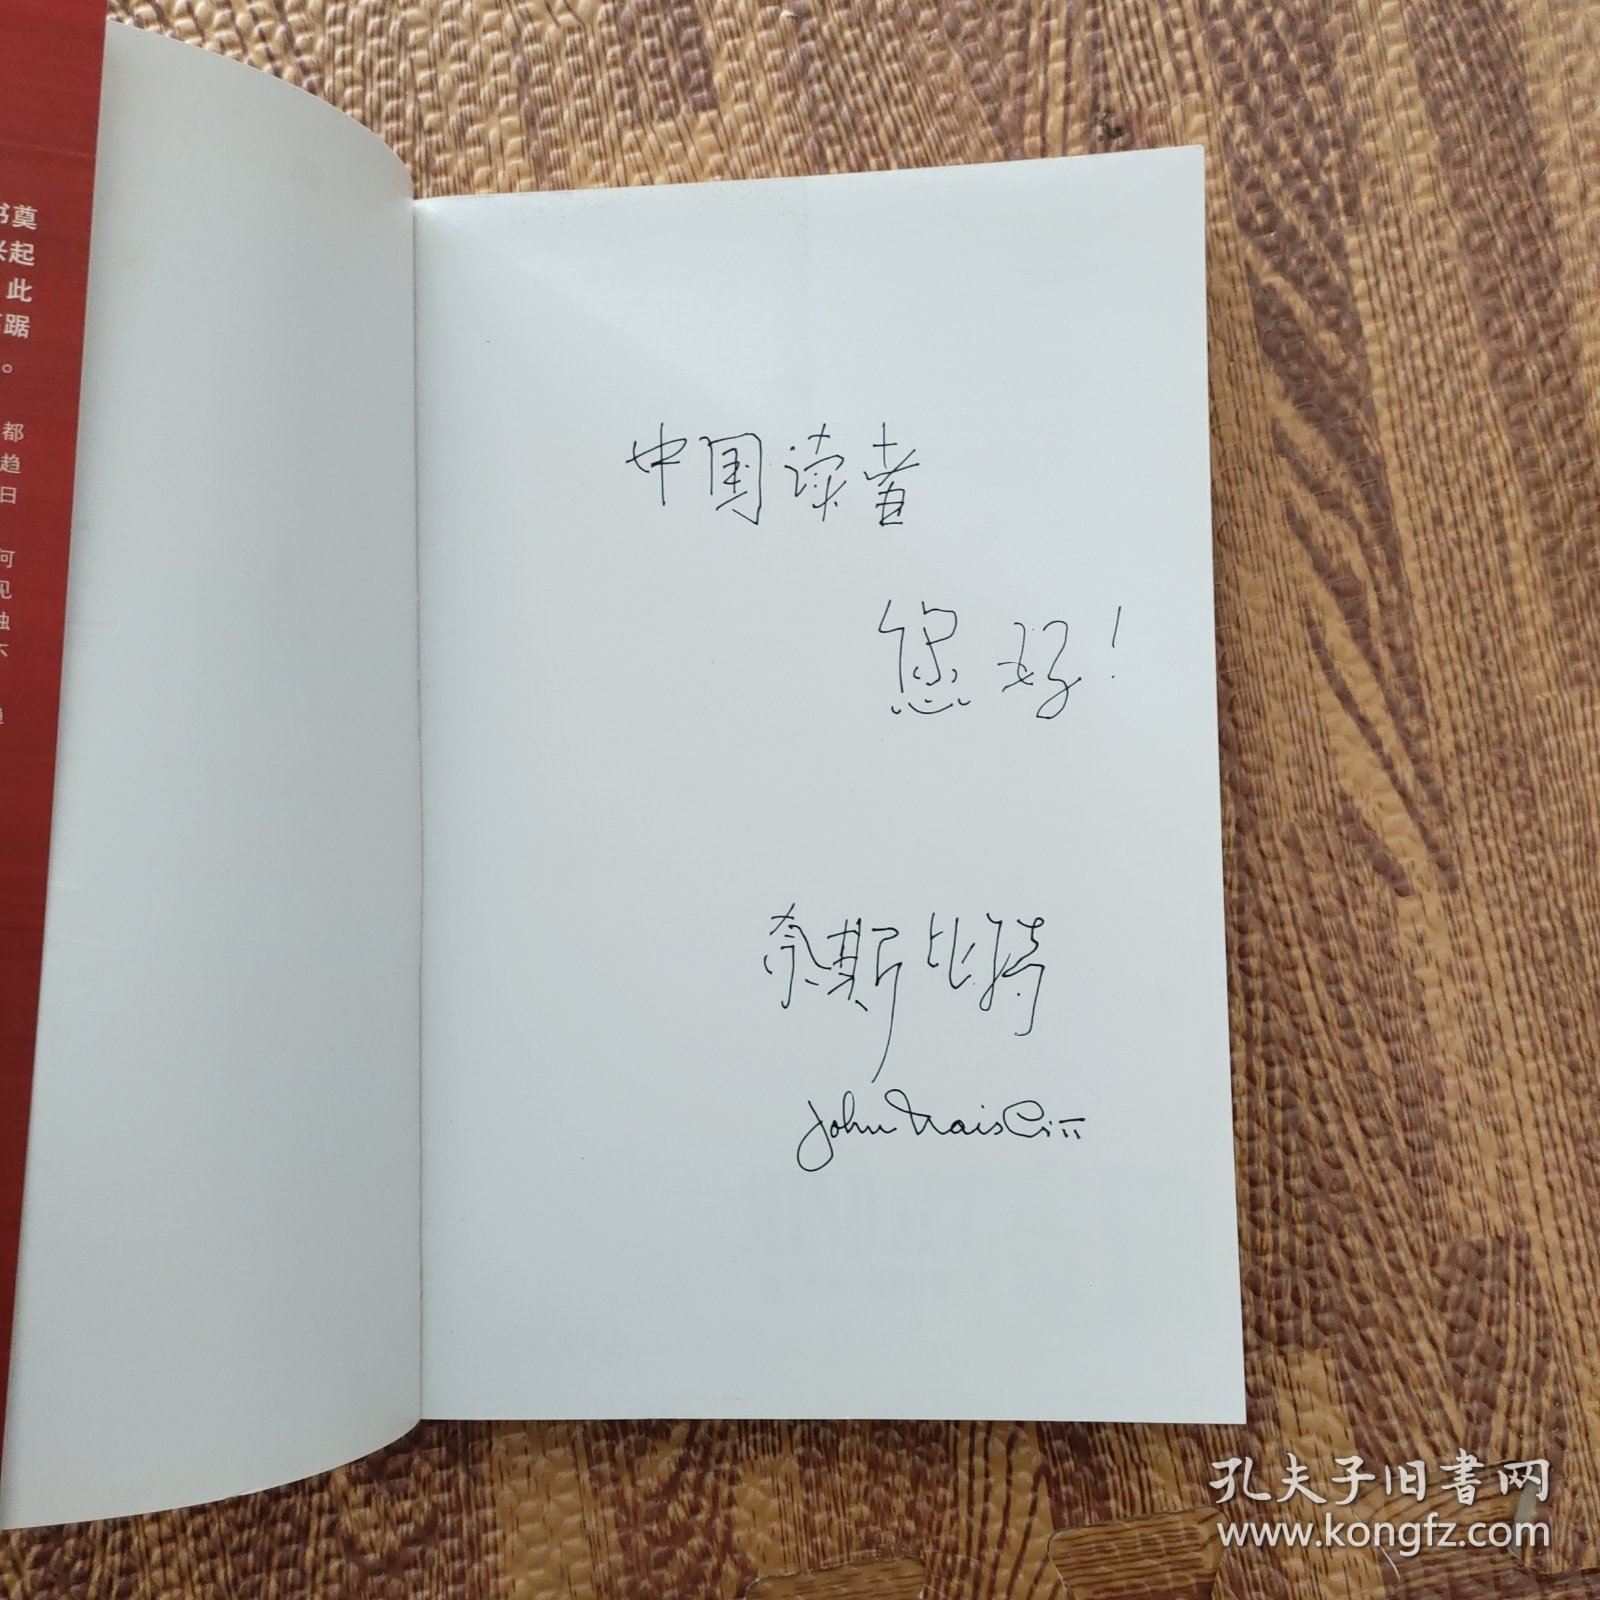 书奠
起
此
踞
。
都
趋
日
何
见
独
不
中国读者
您好!
奈斯比特
John Naisbitt
孔夫子旧书网
www.kongfz.com